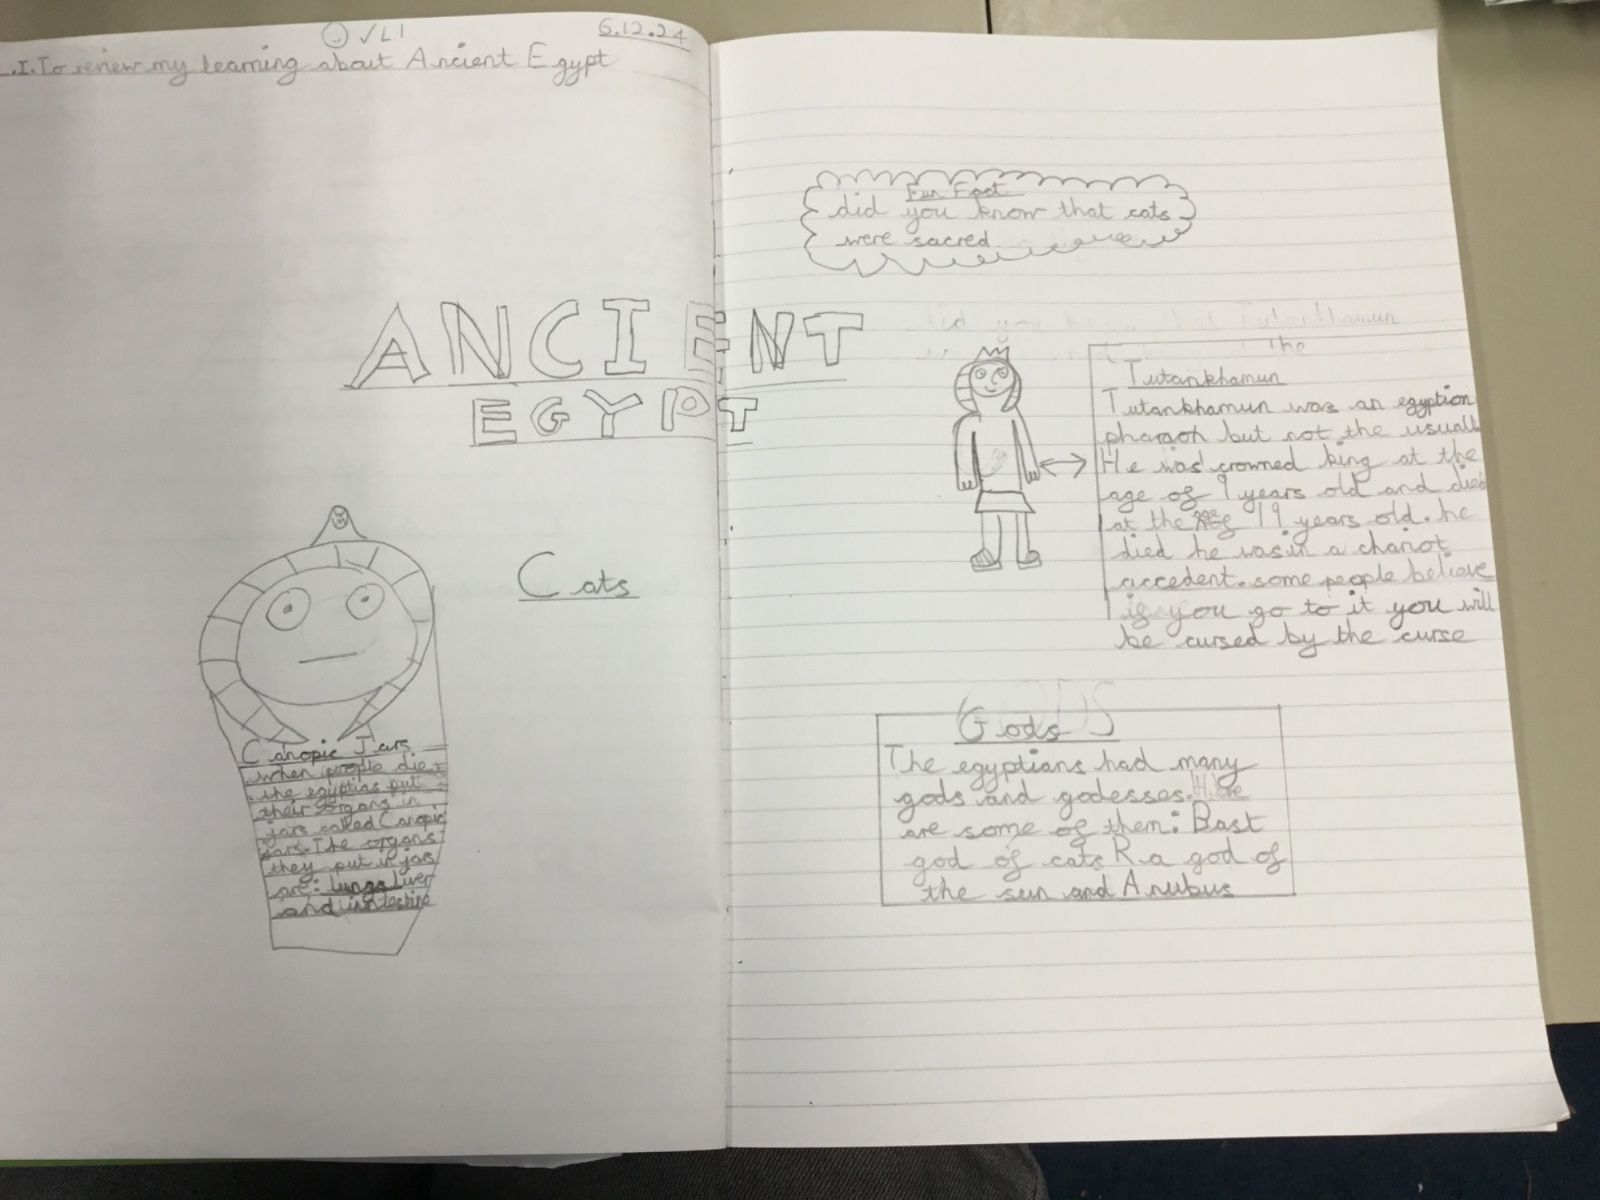 ✓LI
6.12.24
.I. To review my learning about Ancient Egypt
ANCIENT
EGYPT
Cats
Canopic Jars
when people died
the egyptias put
their organs in
jars called Canopic
jars. The organs
they put in jars
are: lungs Liver
and intestine
Fun Fact
did you know that cats
were sacred
did you know that Tutankhamun
The
Tutankhamun
Tutankhamun was an egyption
pharaoh but not the usuall
He was crowned king at the
age of 9 years old and died
at the age of 19 years old. he
died he was in a chariot
accedent. some people believe
if you go to it you will
be cursed by the curse
GODS
Gods
The egyptians had many
gods and godesses. Here
are some of them: Bast
god of cats Ra god of
the sun and Anubus